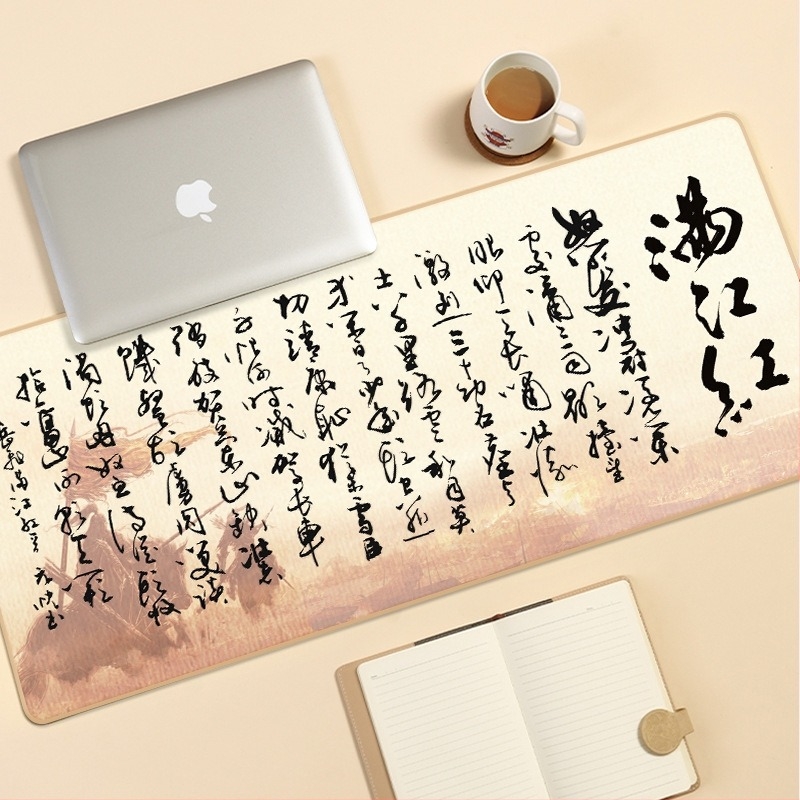 满江红
怒髮冲冠凭阑
处潇潇雨歇抬望
眼仰天长啸壮怀
激烈三十功名尘与
土八千里路云和月莫
等闲白了少年头空悲
切靖康耻犹未雪臣
子恨何时灭驾长车
踏破贺兰山缺壮志
饥餐胡虏肉笑谈
渴饮匈奴血待从头收
拾旧山河朝天阙
岳飞满江红